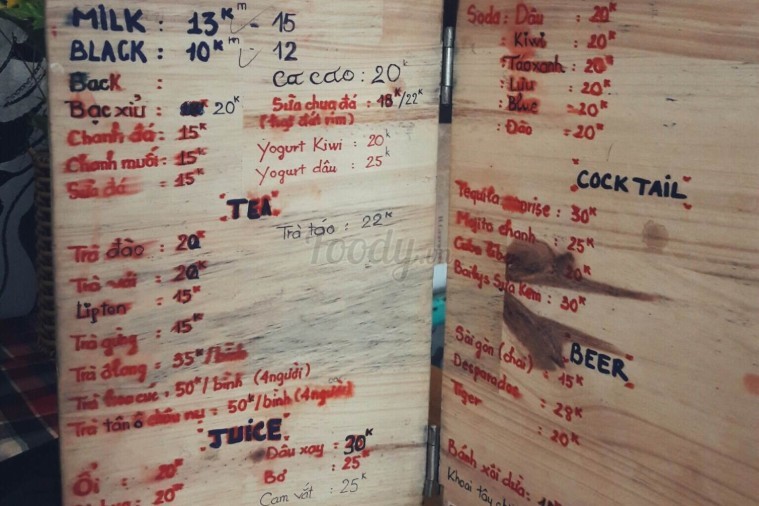 MILK : 13K m - 15
BLACK : 10K m - 12
Bạck :
Bạc xỉu : 20K
Chanh đá : 15K
Chanh muối : 15K
Sữa đá : 15K
Ca cao : 20K
Sữa chua đá : 18K/22K
Yogurt Kiwi : 20K
Yogurt dâu : 25K
TEA
Trà táo : 22K
Trà đào : 20K
Trà vải : 20K
Lipton : 15K
Trà gừng : 15K
Trà Ôlong : 35K/bình
Trà hoa cúc : 50K/bình (4người)
Trà tần ô châu mỹ : 50K/bình (4người)
JUICE
Ổi : 20K
20K
Dâu xay : 30K
Bơ : 25K
Cam vắt : 25K
Foody.vn
Soda : Dâu : 20K
Kiwi : 20K
Táo xanh : 20K
Lựu : 20K
Blue : 20K
Đào : 20K
COCKTAIL
Tequila sunrise : 30K
Mojito chanh : 25K
20K
Bailys Sữa Kem : 30K
BEER
Sài gòn (chai) : 15K
Desparados : 28K
Tiger : 20K
Bánh xôi dừa :
Khoai tây